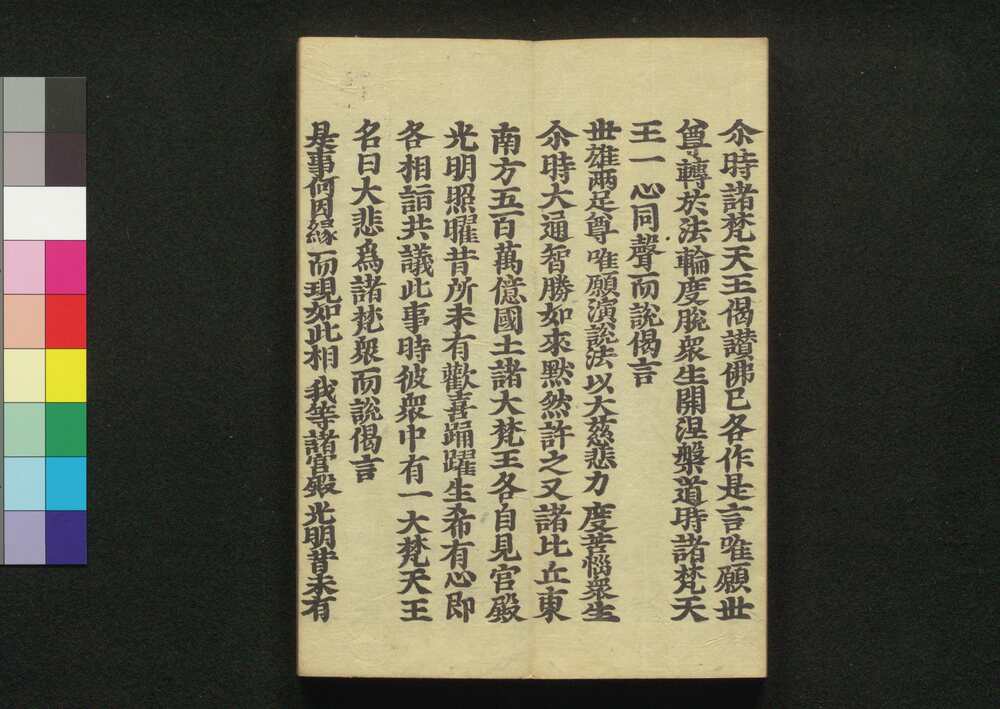 尒時諸梵天王偈讃佛已各作是言唯願世
尊轉於法輪度脫衆生開涅槃道時諸梵天
王一心同聲而說偈言
世雄兩足尊 唯願演說法 以大慈悲力 度苦惱衆生
尒時大通智勝如來默然許之又諸比丘東
南方五百萬億國土諸大梵王各自見宮殿
光明照曜昔所未有歡喜踊躍生希有心即
各相詣共議此事時彼衆中有一大梵天王
名曰大悲爲諸梵衆而說偈言
是事何因緣 而現如此相 我等諸宮殿 光明昔未有